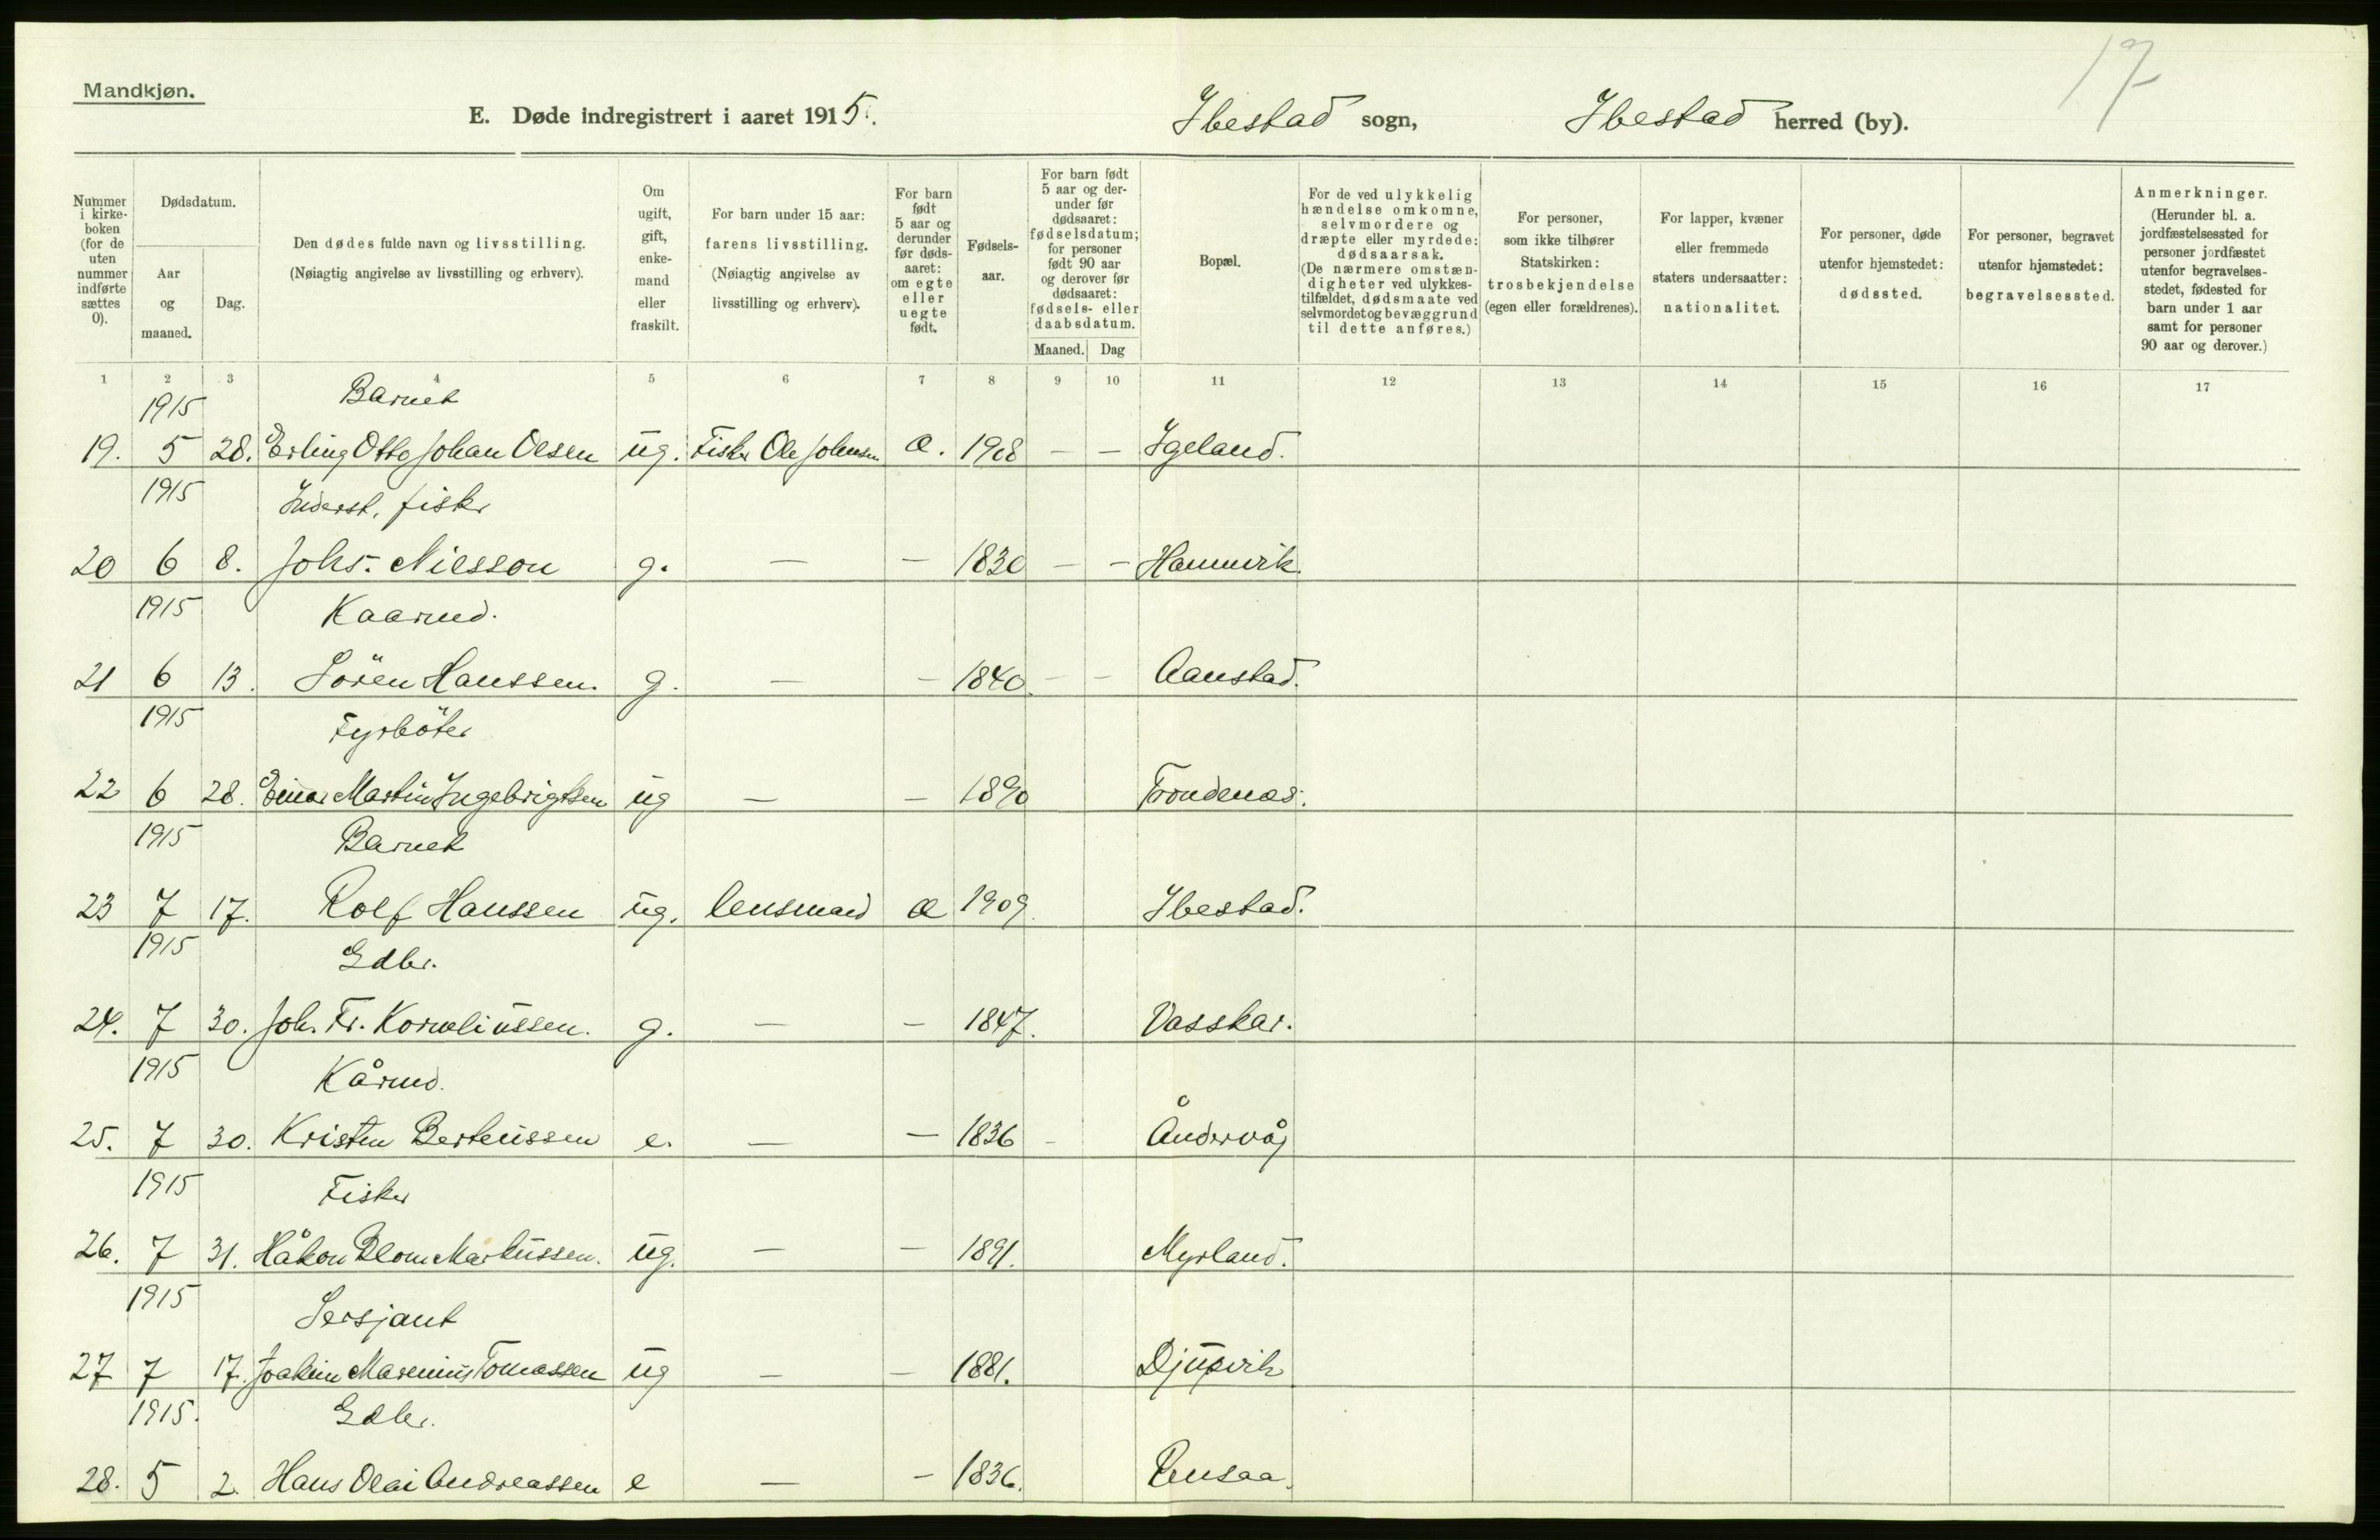 17
Mandkjøn.
E. Døde indregistrert i aaret 1915. Ibestad sogn, Ibestad herred (by).
Nummer i kirke-boken (for de uten nummer indførte sættes 0).
Dødsdatum.
Aar og maaned.
Dag.
Den dødes fulde navn og livsstilling. (Nøiagtig angivelse av livsstilling og erhverv).
Om ugift, gift, enke-mand eller fraskilt.
For barn under 15 aar: farens livsstilling. (Nøiagtig angivelse av livsstilling og erhverv).
For barn født 5 aar og derunder før døds-aaret: om egte eller uegte født.
Fødsels-aar.
For barn født 5 aar og der-under før dødsaaret: fødselsdatum; for personer født 90 aar og derover før dødsaaret: fødsels- eller daabsdatum.
Maaned. Dag
Bopæl.
For de ved ulykkelig hændelse omkomne, selvmordere og dræpte eller myrdede: dødsaarsak. (De nærmere omstæn-digheter ved ulykkes-tilfældet, dødsmaate ved selvmordet og bevæggrund til dette anføres.)
For personer, som ikke tilhører Statskirken: trosbekjendelse (egen eller forældrenes).
For lapper, kvæner eller fremmede staters undersaatter: nationalitet.
For personer, døde utenfor hjemstedet: dødssted.
For personer, begravet utenfor hjemstedet: begravelsessted.
Anmerkninger. (Herunder bl. a. jordfæstelsessted for personer jordfæstet utenfor begravelses-stedet, fødested for barn under 1 aar samt for personer 90 aar og derover.)
1 2 3 4 5 6 7 8 9 10 11 12 13 14 15 16 17
1915 Barnet
19. 5 28. Erling Otto Johan Olsen ug. Fisker Ole Johnsen æ. 1908 — — Igeland.
1915 Inderst, fisker
20 6 8. Johs. Nilsson g. — — 1830 — — Hamnvik.
1915 Kaarmd.
21 6 13. Sören Hanssen. g. — — 1840. — — Aanstad.
1915 Fyrböter
22 6 28. Einar Martin Ingebrigtsen ug — — 1890 Trondenæs.
1915 Barnet
23 7 17. Rolf Hanssen ug. lensmand æ 1909. Ibestad.
1915 Gdbr.
24. 7 30. Joh. Fr. Korneliussen. g. — — 1847. Vasskar.
1915 Kårmd.
25. 7 30. Kristen Berteussen e. — — 1836 — Åndervåg
1915 Fisker
26. 7 31. Håkon Blom Markussen. ug. — — 1891. Myrland.
1915 Sersjant
27 7 17. Joakim Marenius Tomassen ug — — 1881. Djupvik
1915. Gdbr.
28. 5 2. Hans Olai Andreassen e — — 1836. Rensaa.